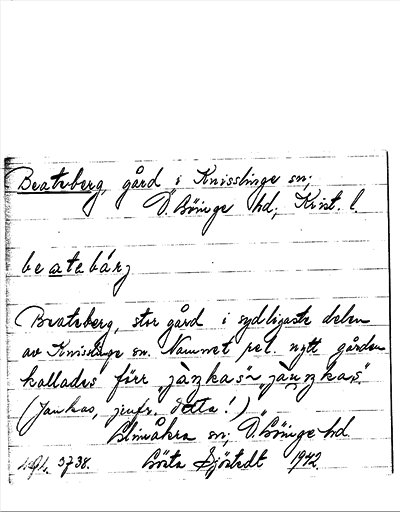 Beateberg, gård i Knisslinge sn;
Ö. Göinge hd; Krist. l.
beatebárʒ
Beateberg, stor gård i sydligaste delen
av Knisslinge sn. Namnet rel. nytt gården
kallades förr "jàŋkas" ~ "jàuŋkas"
(Jankas, jmfr. detta!)
Glimåkra sn; Ö. Göinge hd.
3738. Gösta Sjöstedt 1942